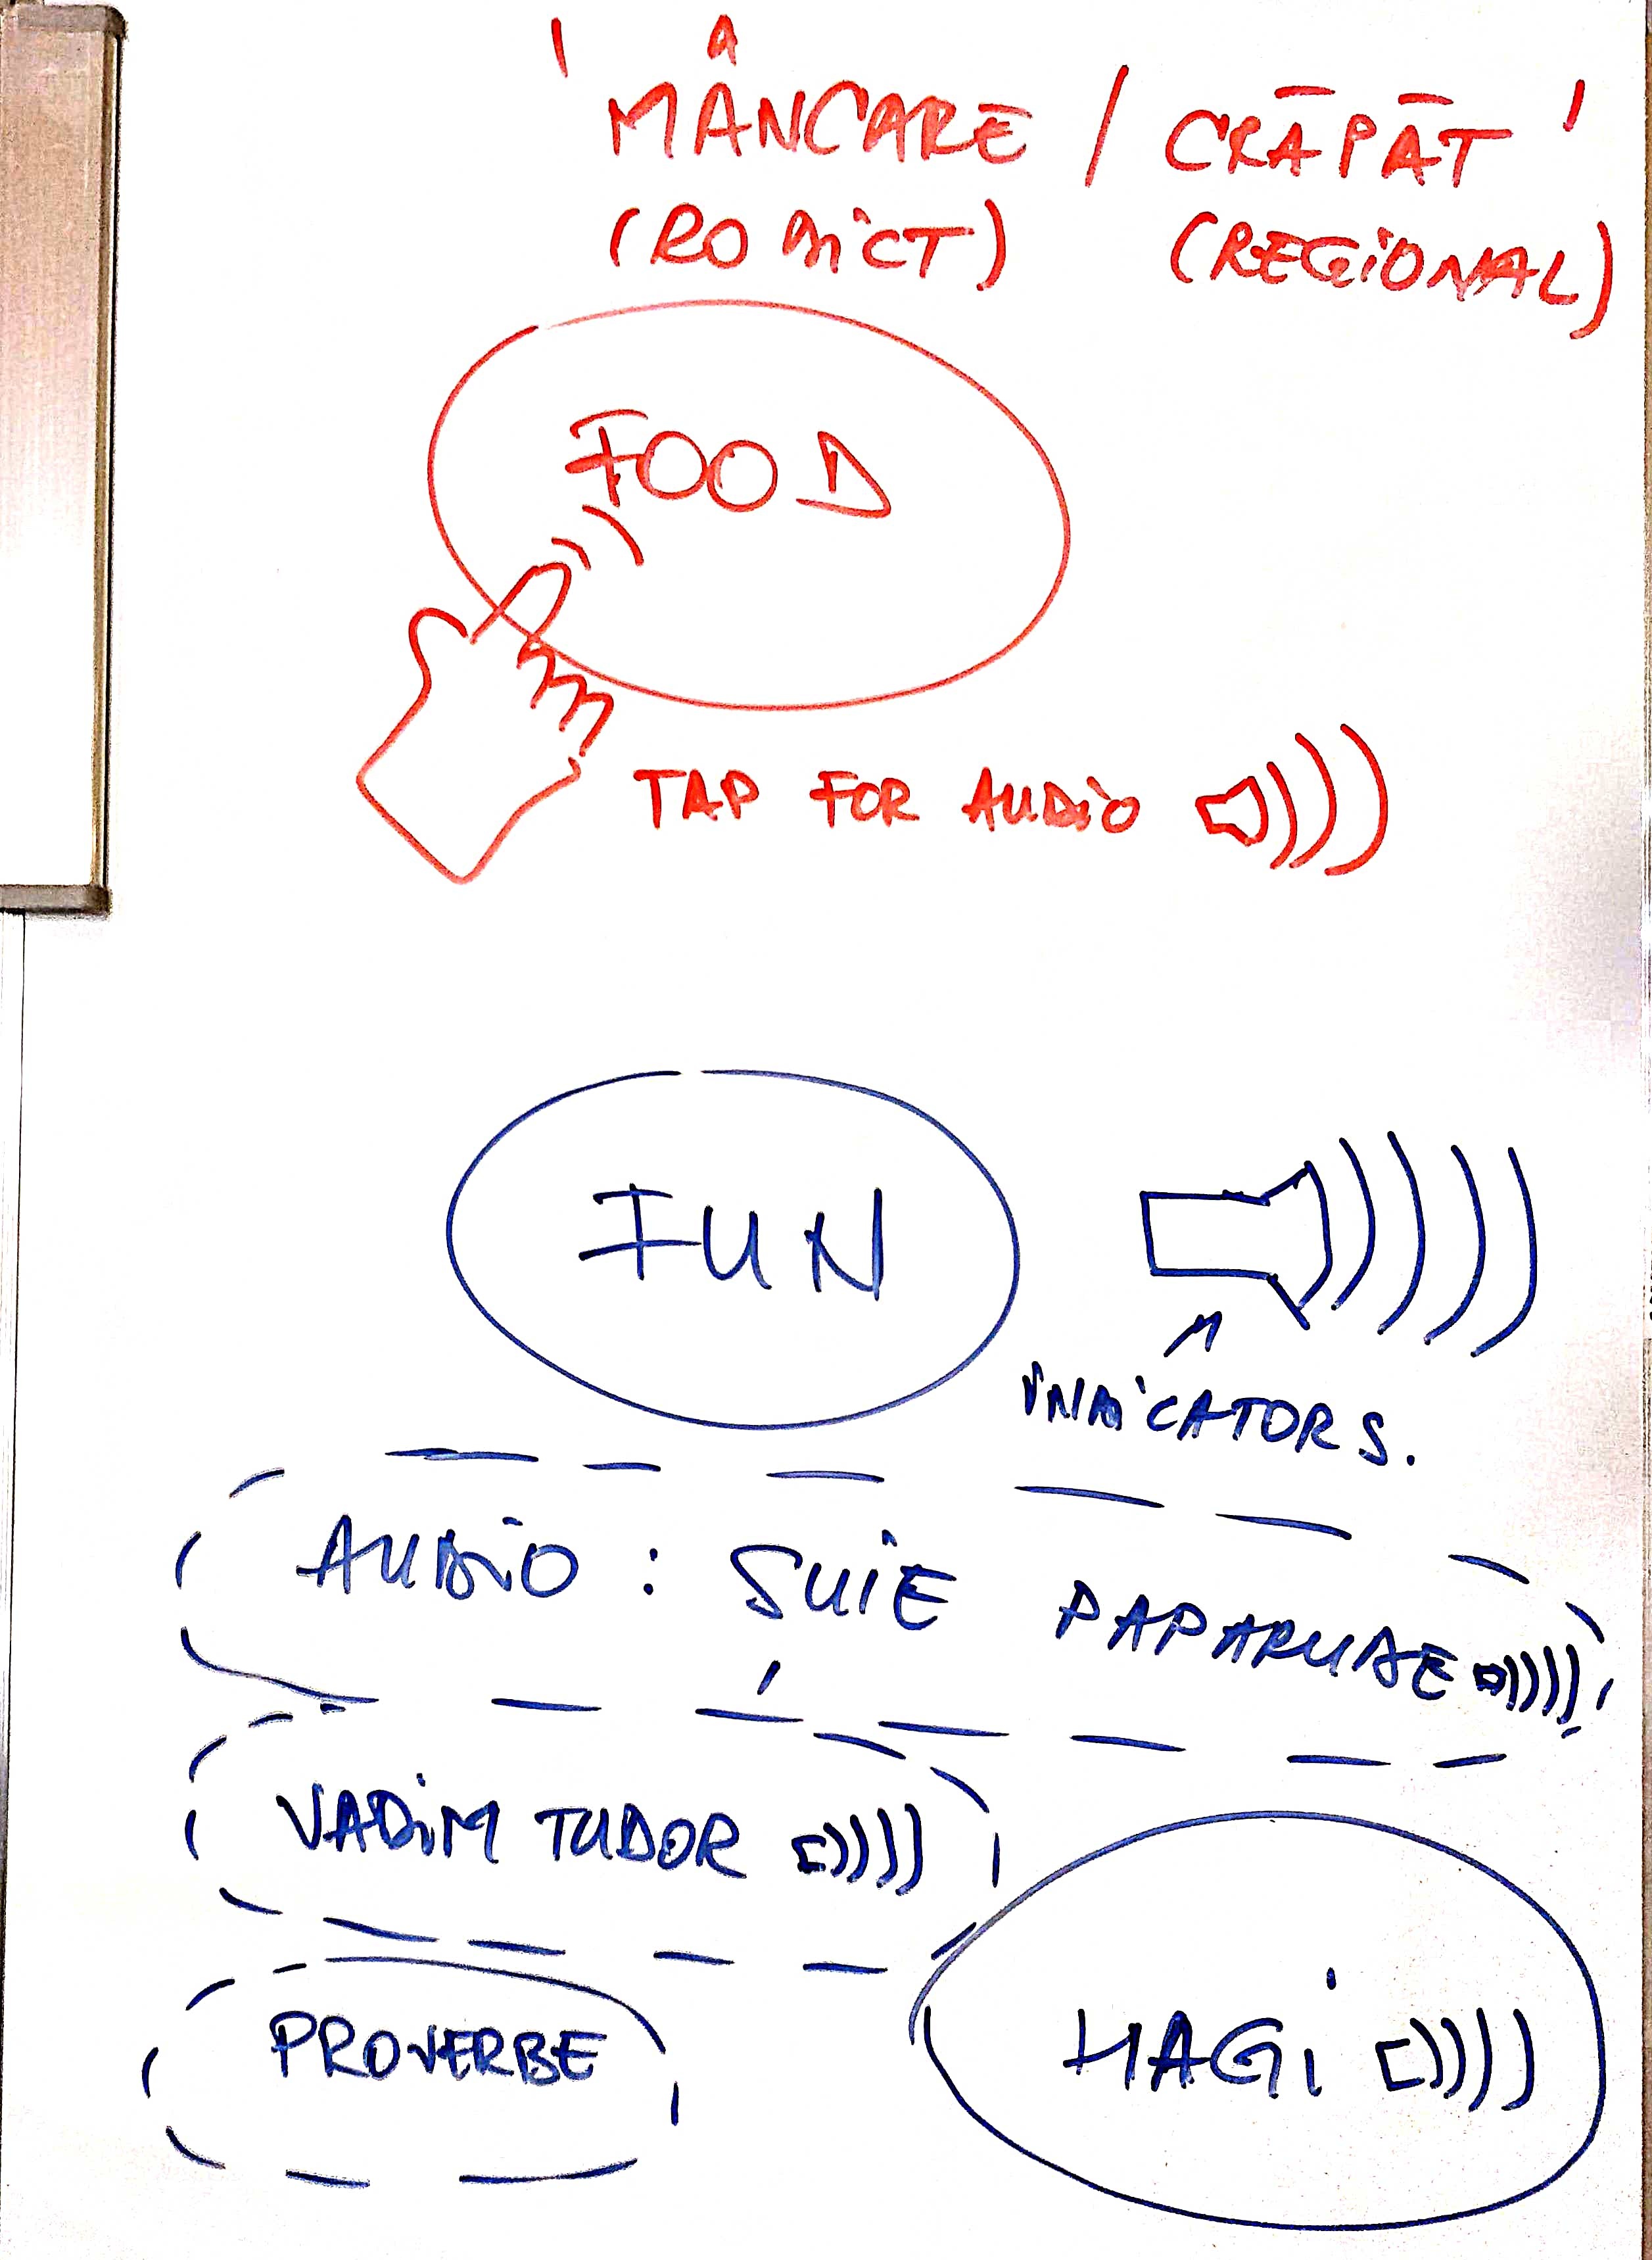 ' MÂNCARE / CRĀPĀT '
(RO DiCT) (REGiONAL)
FOOD
TAP FOR AUDiO
FUN
iNDiCATORS.
AUDiO : SUiE PAPARUDE
VADiM TUDOR
HAGi
PROVERBE